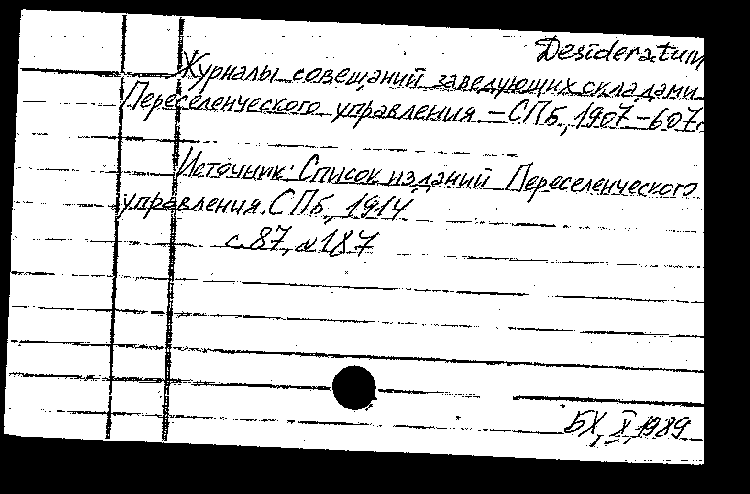 Desideratum
Журналы совещаний заведующих складами
Переселенческого управления. – СПб, 1907 – 607с
Источник: Список изданий Переселенческого
управления. СПб, 1914
с. 87, №187
БХ, X, 1989